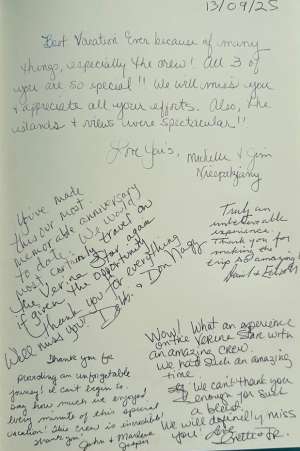 13/09/25
Best Vacation Ever because of many
things, especially the crew! All 3 of
you are so special!! We will miss you
& appreciate all your efforts. Also, the
islands & views were spectacular!!
Love Ya's,
Michelle & Jim
You've made
this our most
memorable anniversary
to date. We would
most certainly travel on
the Verina Star again
if given the opportunity
Thank you for everything
We'll miss you. Debb. & Don Nagy
Truly an
unbelievable
experience.
Thank you for
making the
trip so amazing!
Thank you for
providing an unforgetable
journey! I can't begin to
say how much we enjoyed
every minute of this special
vacation! This crew is incredible!
Thank you!
John & Marlene
Wow! What an experience
on the Verina Star with
an amazing crew.
We had such an amazing
time.
We can't thank you
enough for such
a blast!
We will definitely miss
you! Love